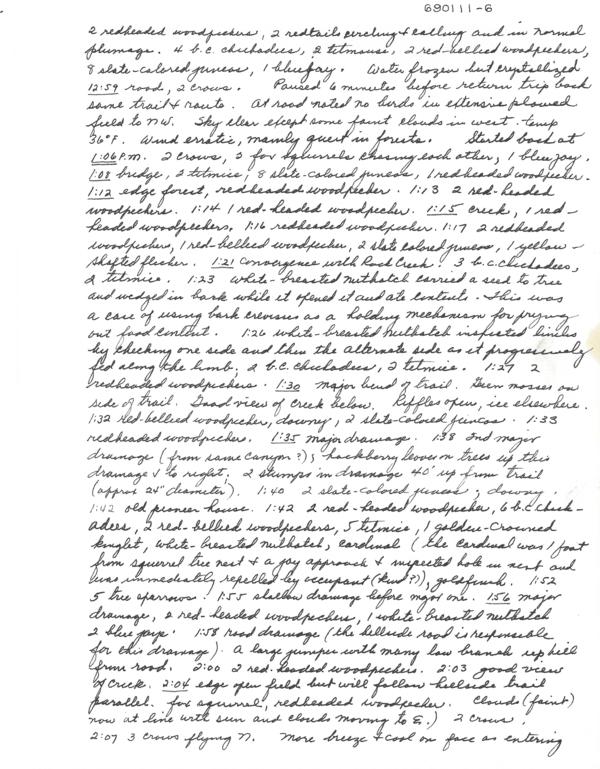 690111-6
2 redheaded woodpeckers, 2 redtails circling & calling and in normal
plumage. 4 b.c. chickadees, 2 titmouse, 2 red-bellied woodpeckers,
8 slate-colored juncos, 1 bluejay. Water frozen but crystallized
12:59 road, 2 crows. Paused 6 minutes before return trip back
same trail & route. At road noted no birds in extensive plowed
field to NW. Sky clear except some faint clouds in west. temp
36°F. Wind erratic, mainly quiet in forests. Started back at
1:06 P.M. 2 crows, 2 fox squirrels chasing each other, 1 bluejay.
1:08 bridge, 2 titmice, 8 slate-colored juncos, 1 redheaded woodpecker.
1:12 edge forest, redheaded woodpecker. 1:13 2 red-headed
woodpeckers. 1:14 1 red-headed woodpecker. 1:15 creek, 1 red-
headed woodpeckers. 1:16 redheaded woodpecker. 1:17 2 redheaded
woodpecker, 1 red-bellied woodpecker, 2 slate colored juncos, 1 yellow-
shafted flicker. 1:21 Convergence with Rock Creek. 3 b.c. chickadees,
2 titmice. 1:23 white-breasted nuthatch carried a seed to tree
and wedged in bark while it opened it and ate contents. This was
a case of using bark crevices as a holding mechanism for prying
out food content. 1:26 white-breasted nuthatch inspected limbs
by checking one side and then the alternate side as it progressively
fed along the limb, 2 b.c. chickadees, 2 titmice. 1:27 2
redheaded woodpeckers. 1:30 major bend of trail. Green mosses on
side of trail. Good view of creek below. Riffles open, ice elsewhere.
1:32 red-bellied woodpecker, downy, 2 slate-colored juncos. 1:33
redheaded woodpecker. 1:35 major drainage. 1:38 2nd major
drainage (from same canyon?); hackberry leaves on trees up this
drainage & to right; 2 stumps in drainage 40' up from trail
(approx 24" diameter). 1:40 2 slate-colored juncos; downy.
1:42 old pioneer house. 1:42 2 red-headed woodpecker, 6 b.c. chick-
adees, 2 red-bellied woodpeckers, 5 titmice, 1 golden-crowned
kinglet, white-breasted nuthatch, cardinal (the cardinal was 1 foot
from squirrel tree nest & a jay approach & inspected hole in nest and
was immediately repelled by occupant (kind?)), goldfinch. 1:52
5 tree sparrows. 1:55 shallow drainage before major one. 1:56 major
drainage, 2 red-headed woodpeckers, 1 white-breasted nuthatch
2 blue jays. 1:58 road drainage (the hillside road is responsible
for this drainage). A large juniper with many low branch up hill
from road. 2:00 2 red-headed woodpeckers. 2:03 good view
of creek. 2:04 edge open field but will follow hillside trail
parallel. fox squirrel, redheaded woodpecker. Clouds (faint)
now at line with sun and clouds moving to E.) 2 crows.
2:07 3 crows flying N. More breeze & cool on face as entering